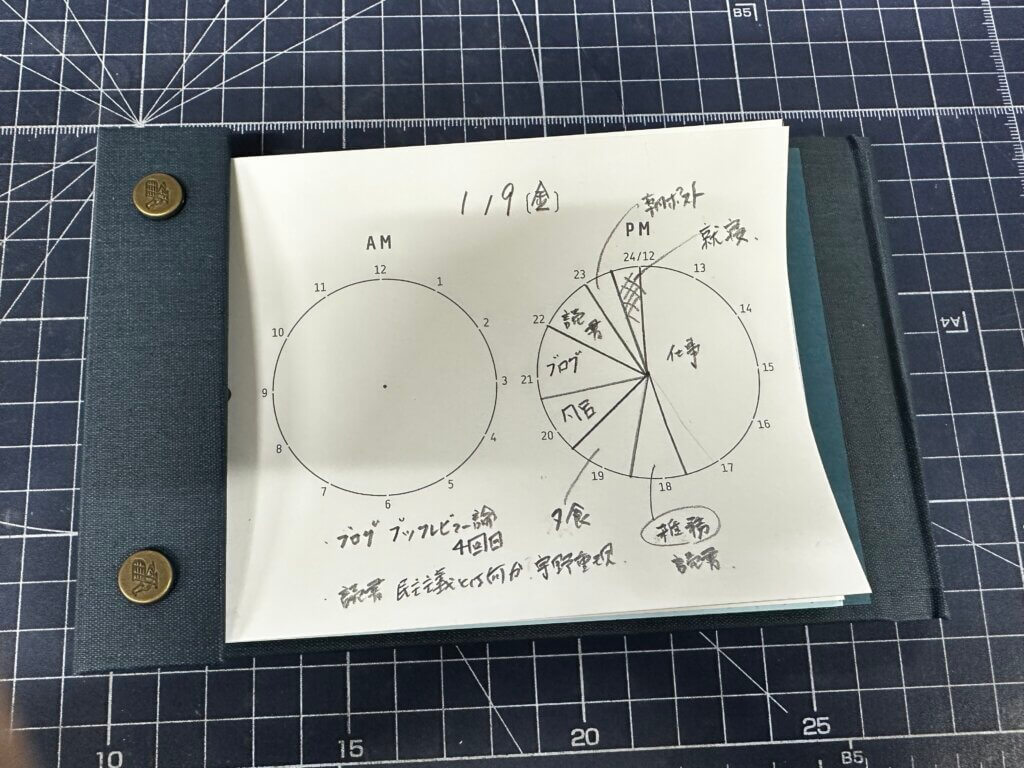 1/9(金)
AM
PM
朝ポスト
就寝.
12
1
2
3
4
5
6
7
8
9
10
11
24/12
13
14
15
16
17
18
19
20
21
22
23
仕事
読書
ブログ
夕食
雑務
読書.
・ブログ ブックレビュー論
4回目
・読書 民主主義とは何か 宇野重規.
B5
A4
10
15
20
25
B5